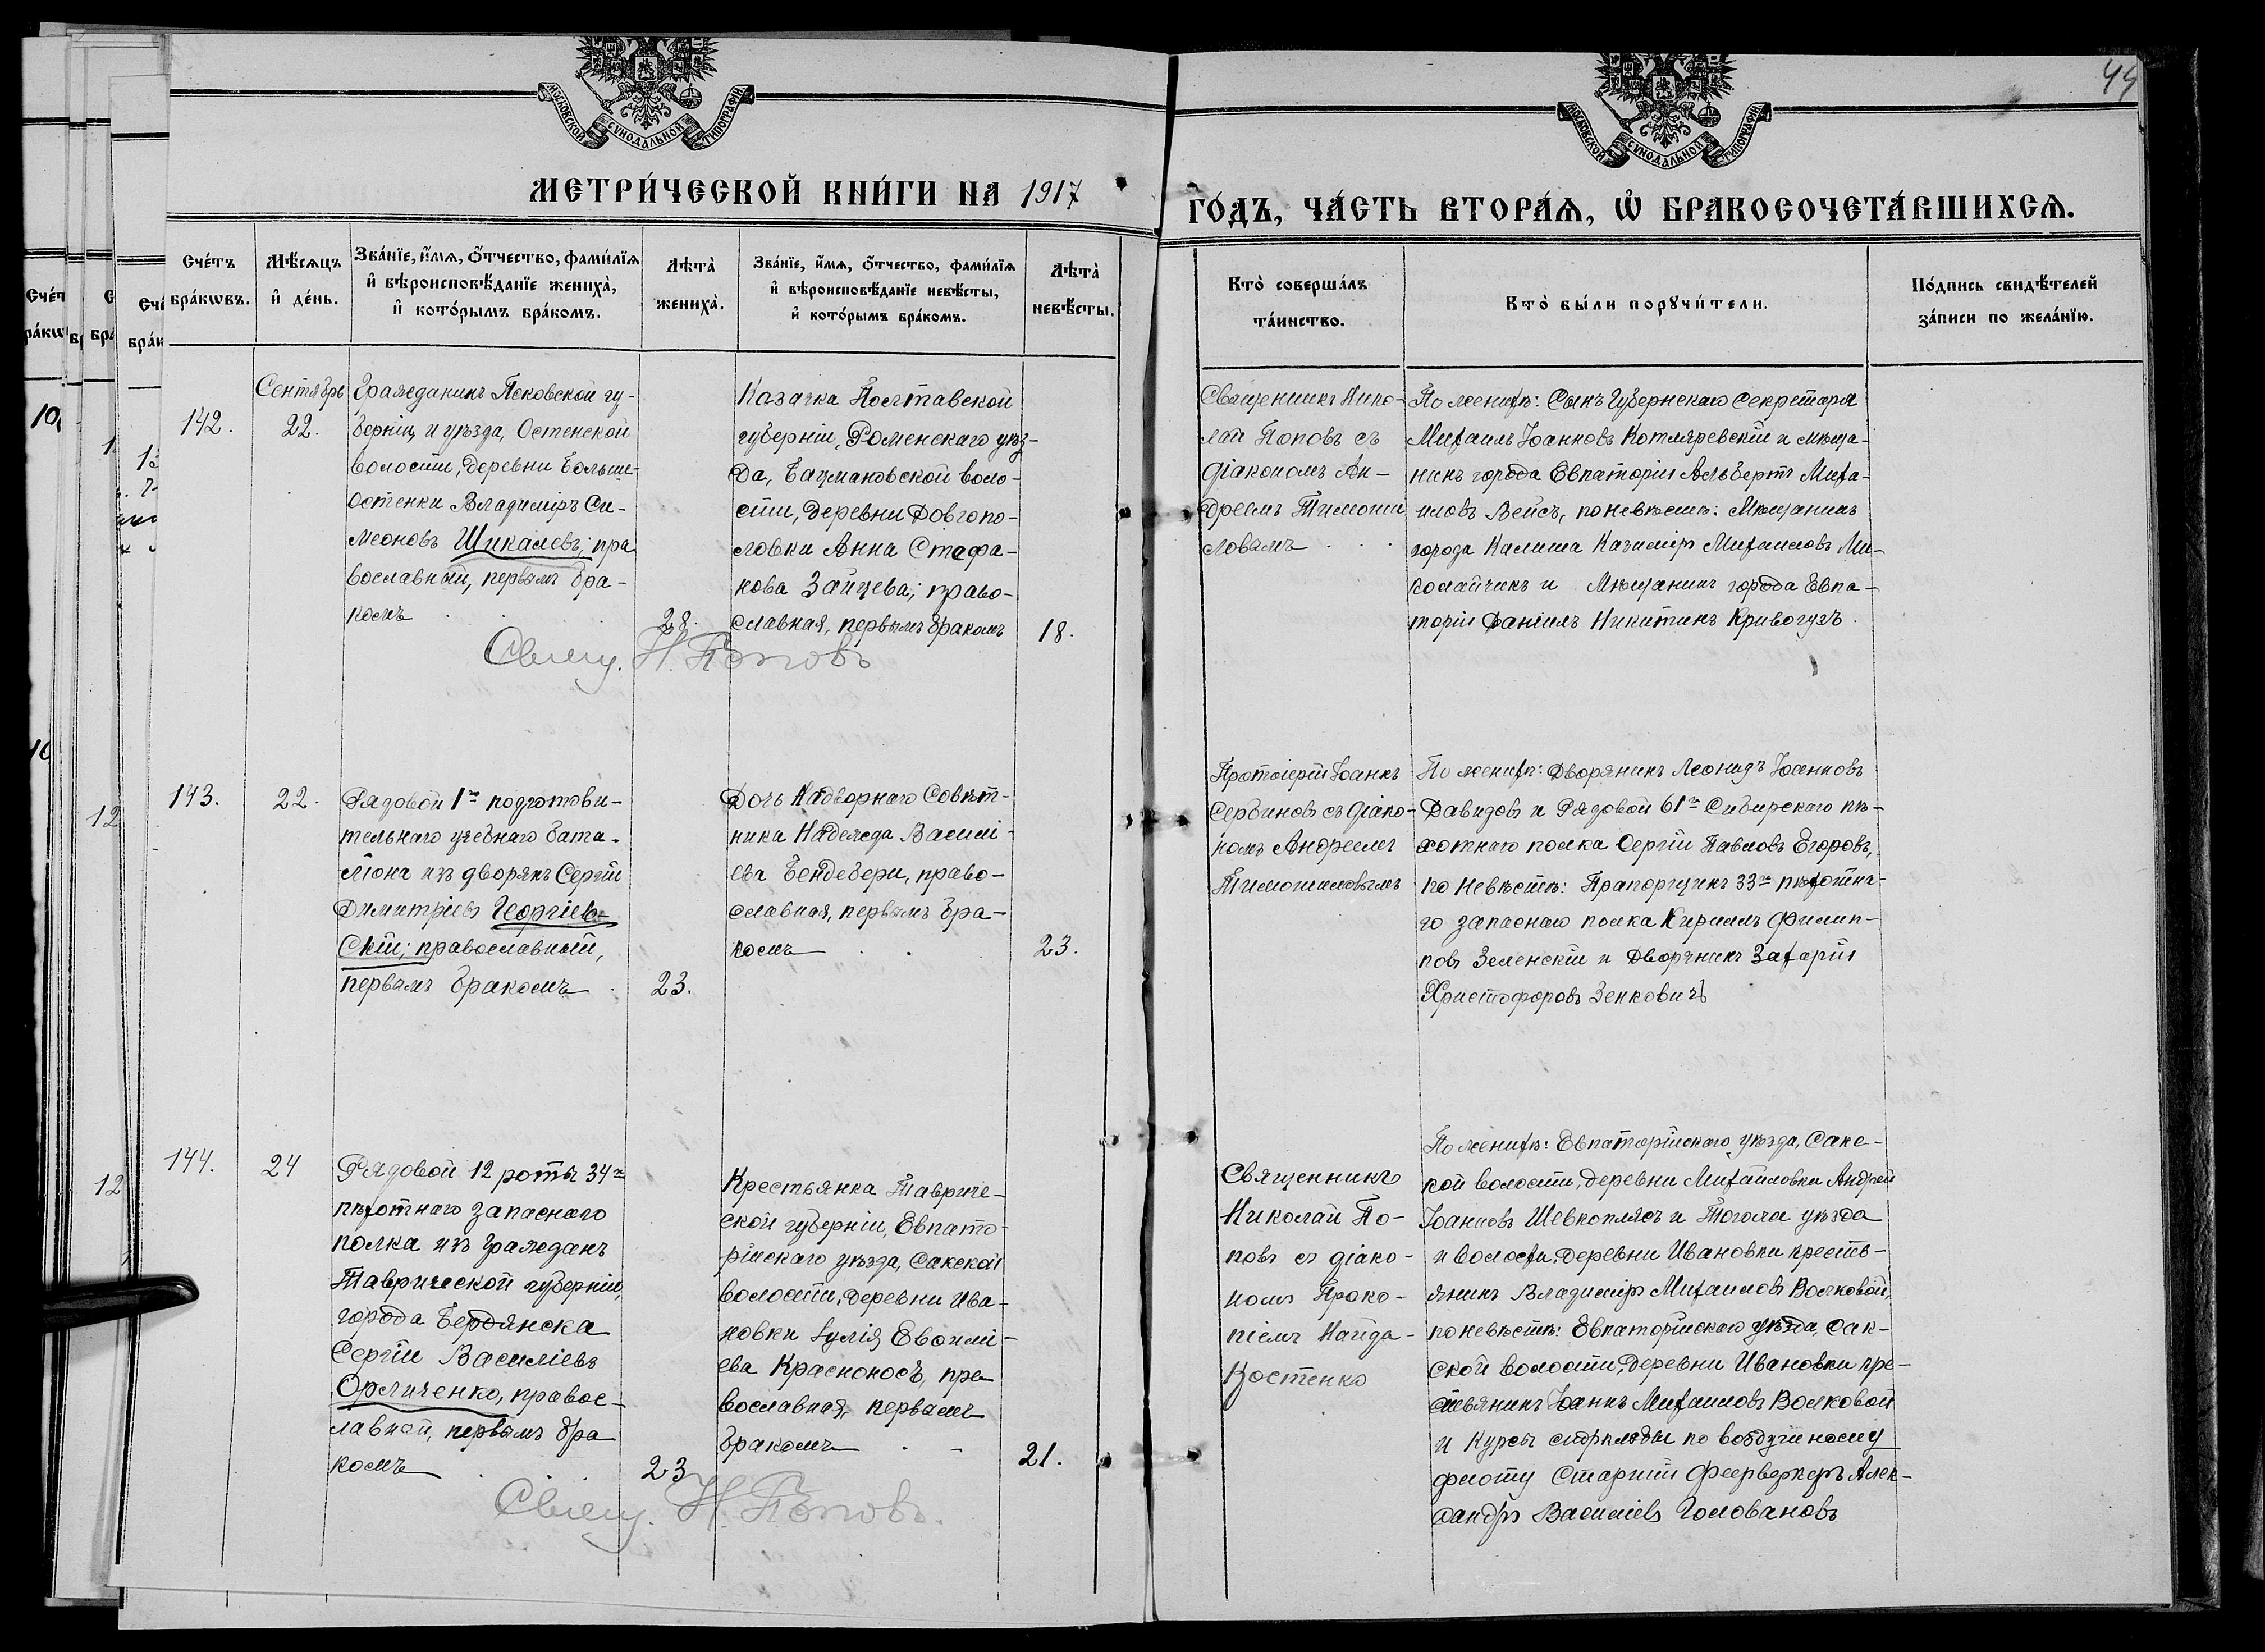 44
МОСКОВСКОЙ СѴНОДАЛЬНОЙ ТИПОГРАФІИ
МОСКОВСКОЙ СѴНОДАЛЬНОЙ ТИПОГРАФІИ
МЕТРИ́ЧЕСКОЙ КНИ́ГИ НА 1917
ГО́ДЪ, ЧА́СТЬ ВТОРА́Ѧ, Ѡ҆ БРАКОСОЧЕТА́ВШИХСѦ.
Сче́тъ
бра́кѡвъ.
Мѣ́сѧцъ
и҆ де́нь.
Зва́нїе, и҆́мѧ, ѻ҆́тчество, фами́лїѧ
и҆ вѣроисповѣ́данїе жениха̀,
и҆ кото́рымъ бра́комъ.
Лѣта̀
жениха̀.
Зва́нїе, и҆́мѧ, ѻ҆́тчество, фами́лїѧ
и҆ вѣроисповѣ́данїе невѣ́сты,
и҆ кото́рымъ бра́комъ.
Лѣта̀
невѣ́сты.
Кто̀ соверша́лъ
та́инство.
Кто̀ бы́ли порꙋчи́тели.
По́дпись свидѣ́телей
за́писи по жела́нїю.
142.
Сентябрь
22.
Гражданинъ Псковской гу-
берніи и уѣзда, Остенской
волости, деревни Больше-
Остенки Владиміръ Си-
меоновъ Шикалевъ; пра
вославный, первымъ бра-
комъ
28.
Казачка Полтавской
губерніи, Роменскаго уѣз-
да, Бацмановской воло-
сти, деревни Довгопо-
ловки Анна Стефа-
нова Зайцева; право-
славная, первымъ бракомъ
18.
Свящ. Н. Поповъ
Священникъ Нико-
лай Поповъ съ
діакономъ Ан-
дреемъ Тимоши
ловымъ
По женихѣ: Сынъ Губернскаго Секретаря
Михаилъ Іоанновъ Котляревскій и мѣща-
нинъ города Евпаторіи Альбертъ Миха-
иловъ Вейсъ, по невѣстѣ: Мѣщанинъ
города Калиша Казиміръ Михаиловъ Ми-
колайчикъ и Мѣщанинъ города Евпа-
торіи Даніилъ Никитинъ Кривогузъ.
143.
22.
Рядовой 1го подготови-
тельнаго учебнаго бата-
ліона изъ дворянъ Сергій
Димитріевъ Георгіев-
скій; православный,
первымъ бракомъ
23.
Дочь Надворнаго Совѣт-
ника Надежда Василі-
ева Бендебери, право-
славная, первымъ бра-
комъ
23.
Протоіерей Іоаннъ
Сербиновъ съ діако-
номъ Андреемъ
Тимошиловымъ
По женихѣ: Дворянинъ Леонидъ Іоанновъ
Давидовъ и Рядовой 61го Сибирскаго пѣ-
хотнаго полка Сергій Павловъ Егоровъ,
по невѣстѣ: Прапорщикъ 33го пѣхотна-
го запаснаго полка Кириллъ Филип-
повъ Зеленскій и Дворянинъ Захарій
Христофоровъ Зенковичъ
144.
24
Рядовой 12 роты 34го
пѣхотнаго запаснаго
полка изъ гражданъ
Таврической губерніи,
города Бердянска
Сергій Василіевъ
Орличенко, правос-
лавный, первымъ бра
комъ
23
Крестьянка Тавриче-
ской губерніи, Евпато-
рійскаго уѣзда, Сакской
волости, деревни Ива-
новки Іулія
ева Красноносъ, пра
вославная, первымъ
бракомъ
21.
Свящ. Н. Поповъ.
Священникъ
Николай По-
повъ съ діако-
номъ Проко-
піемъ Найда-
Костенко
По женихѣ: Евпаторійскаго уѣзда, Сакс-
кой волости, деревни Михайловки Андрей
Іоанновъ Шевкоплясъ и Тогожа уѣзда
и волости, деревни Ивановки кресть-
янинъ Владиміръ Михаиловъ Волковой,
по невѣстѣ: Евпаторійскаго уѣзда, Сак-
ской волости, деревни Ивановки кре-
стьянинъ Іоаннъ Михаиловъ Волковой
и Курсы стрѣльбы по воздушному
флоту Старшій Фейерверкеръ Алек-
сандръ Василіевъ Головановъ